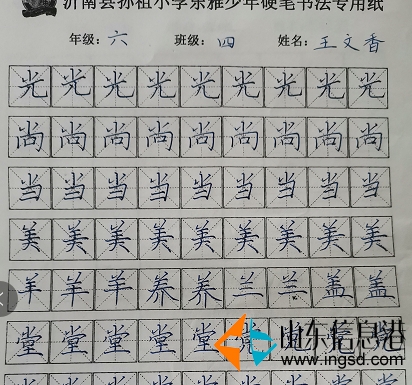 沂南县孙祖小学东雅少年硬笔书法专用纸
年级：六 班级：四 姓名：王文香
光光光光光光光光光
尚尚尚尚尚尚尚尚尚
当当当当当当当当当
美美美美美美美美美
羊羊羊养养兰兰盖盖
堂堂堂堂堂堂
山东信息港
www.ingsd.com